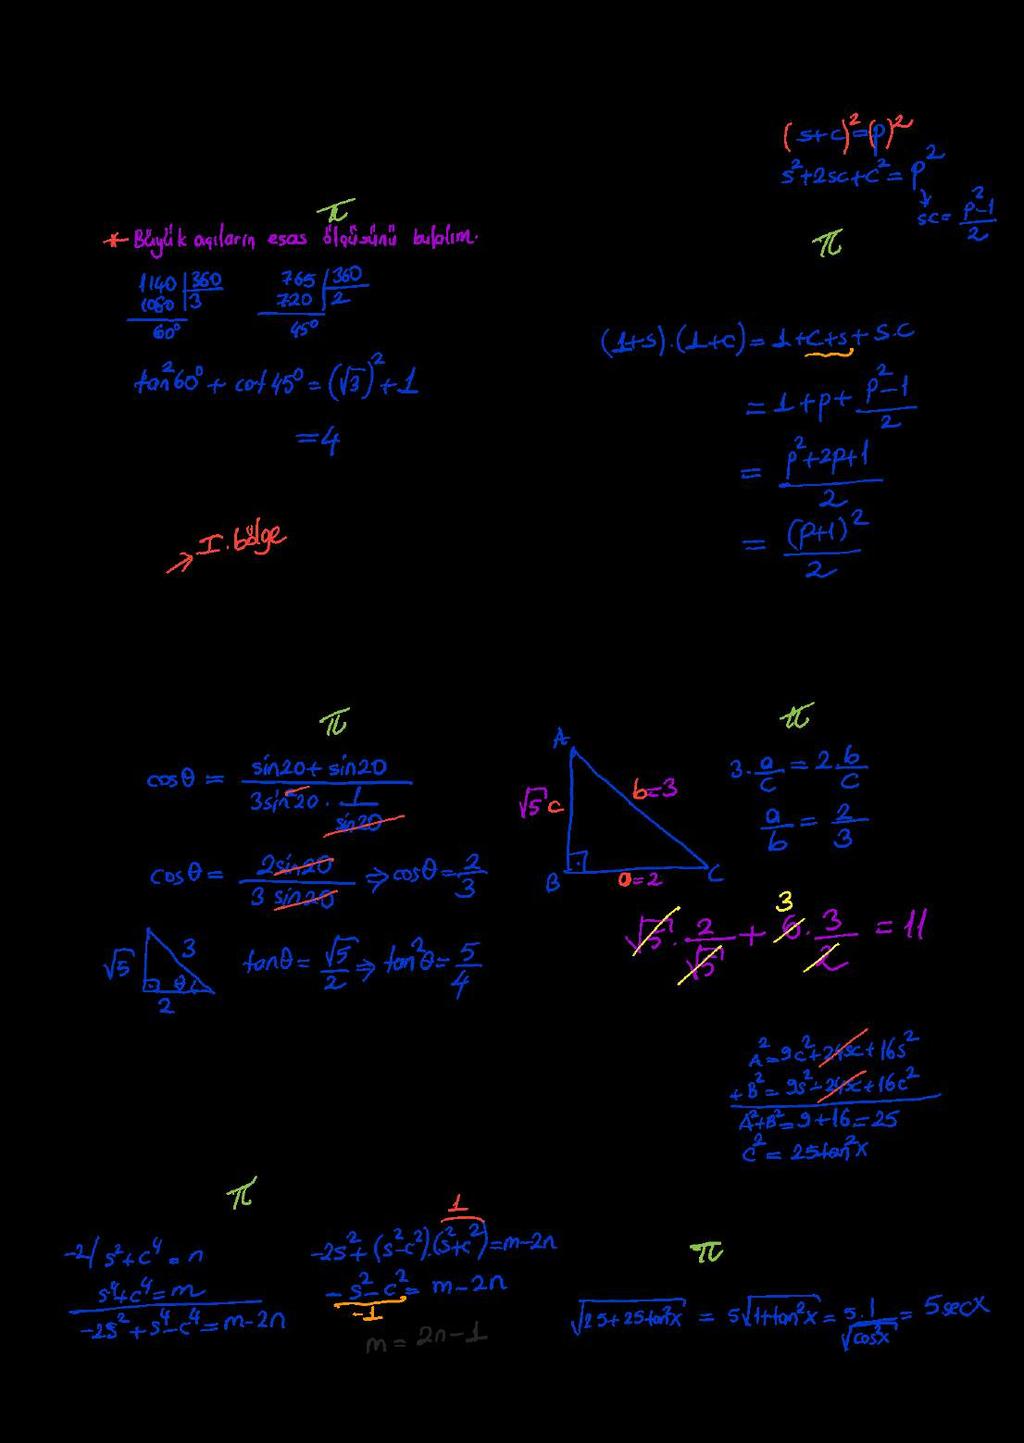 π
* Büyük açıların esas ölçüsünü bulalım.
1140 | 360
1080 | 3
60°
765 | 360
720 | 2
45°
tan²60° + cot45° = (√3)² + 1
= 4
I. bölge
(s+c)² = (p)²
s²+2sc+c² = p²
sc = (p²-1)/2
π
(1+s).(1+c) = 1+c+s+s.c
= 1+p+(p²-1)/2
= (p²+2p+1)/2
= (p+1)²/2
π
cosθ = (sin20+sin20)/(3sin20 . 1/sin20)
cosθ = 2sin20/3sin20 ⇒ cosθ = 2/3
√5 3 θ 2
tanθ = √5/2 ⇒ tan²θ = 5/4
π
A
√5 c b=3
B a=2 C
3.a/c = 2.b/c
a/b = 2/3
3
√5 . 2/√5 + 6 . 3/2 = 11
A² = 9c²+24sc+16s²
+ B² = 9s²-24sc+16c²
A²+B² = 9+16 = 25
C² = 25tan²x
π
-2/ s²+c⁴ = n
s⁴+c⁴ = m
-2s²+s⁴-c⁴ = m-2n
1
-2s²+(s²-c²).(s²+c²) = m-2n
-s²-c² = m-2n
-1
m = 2n-1
π
√(25+25tan²x) = 5√(1+tan²x) = 5.1/√(cos²x) = 5secx